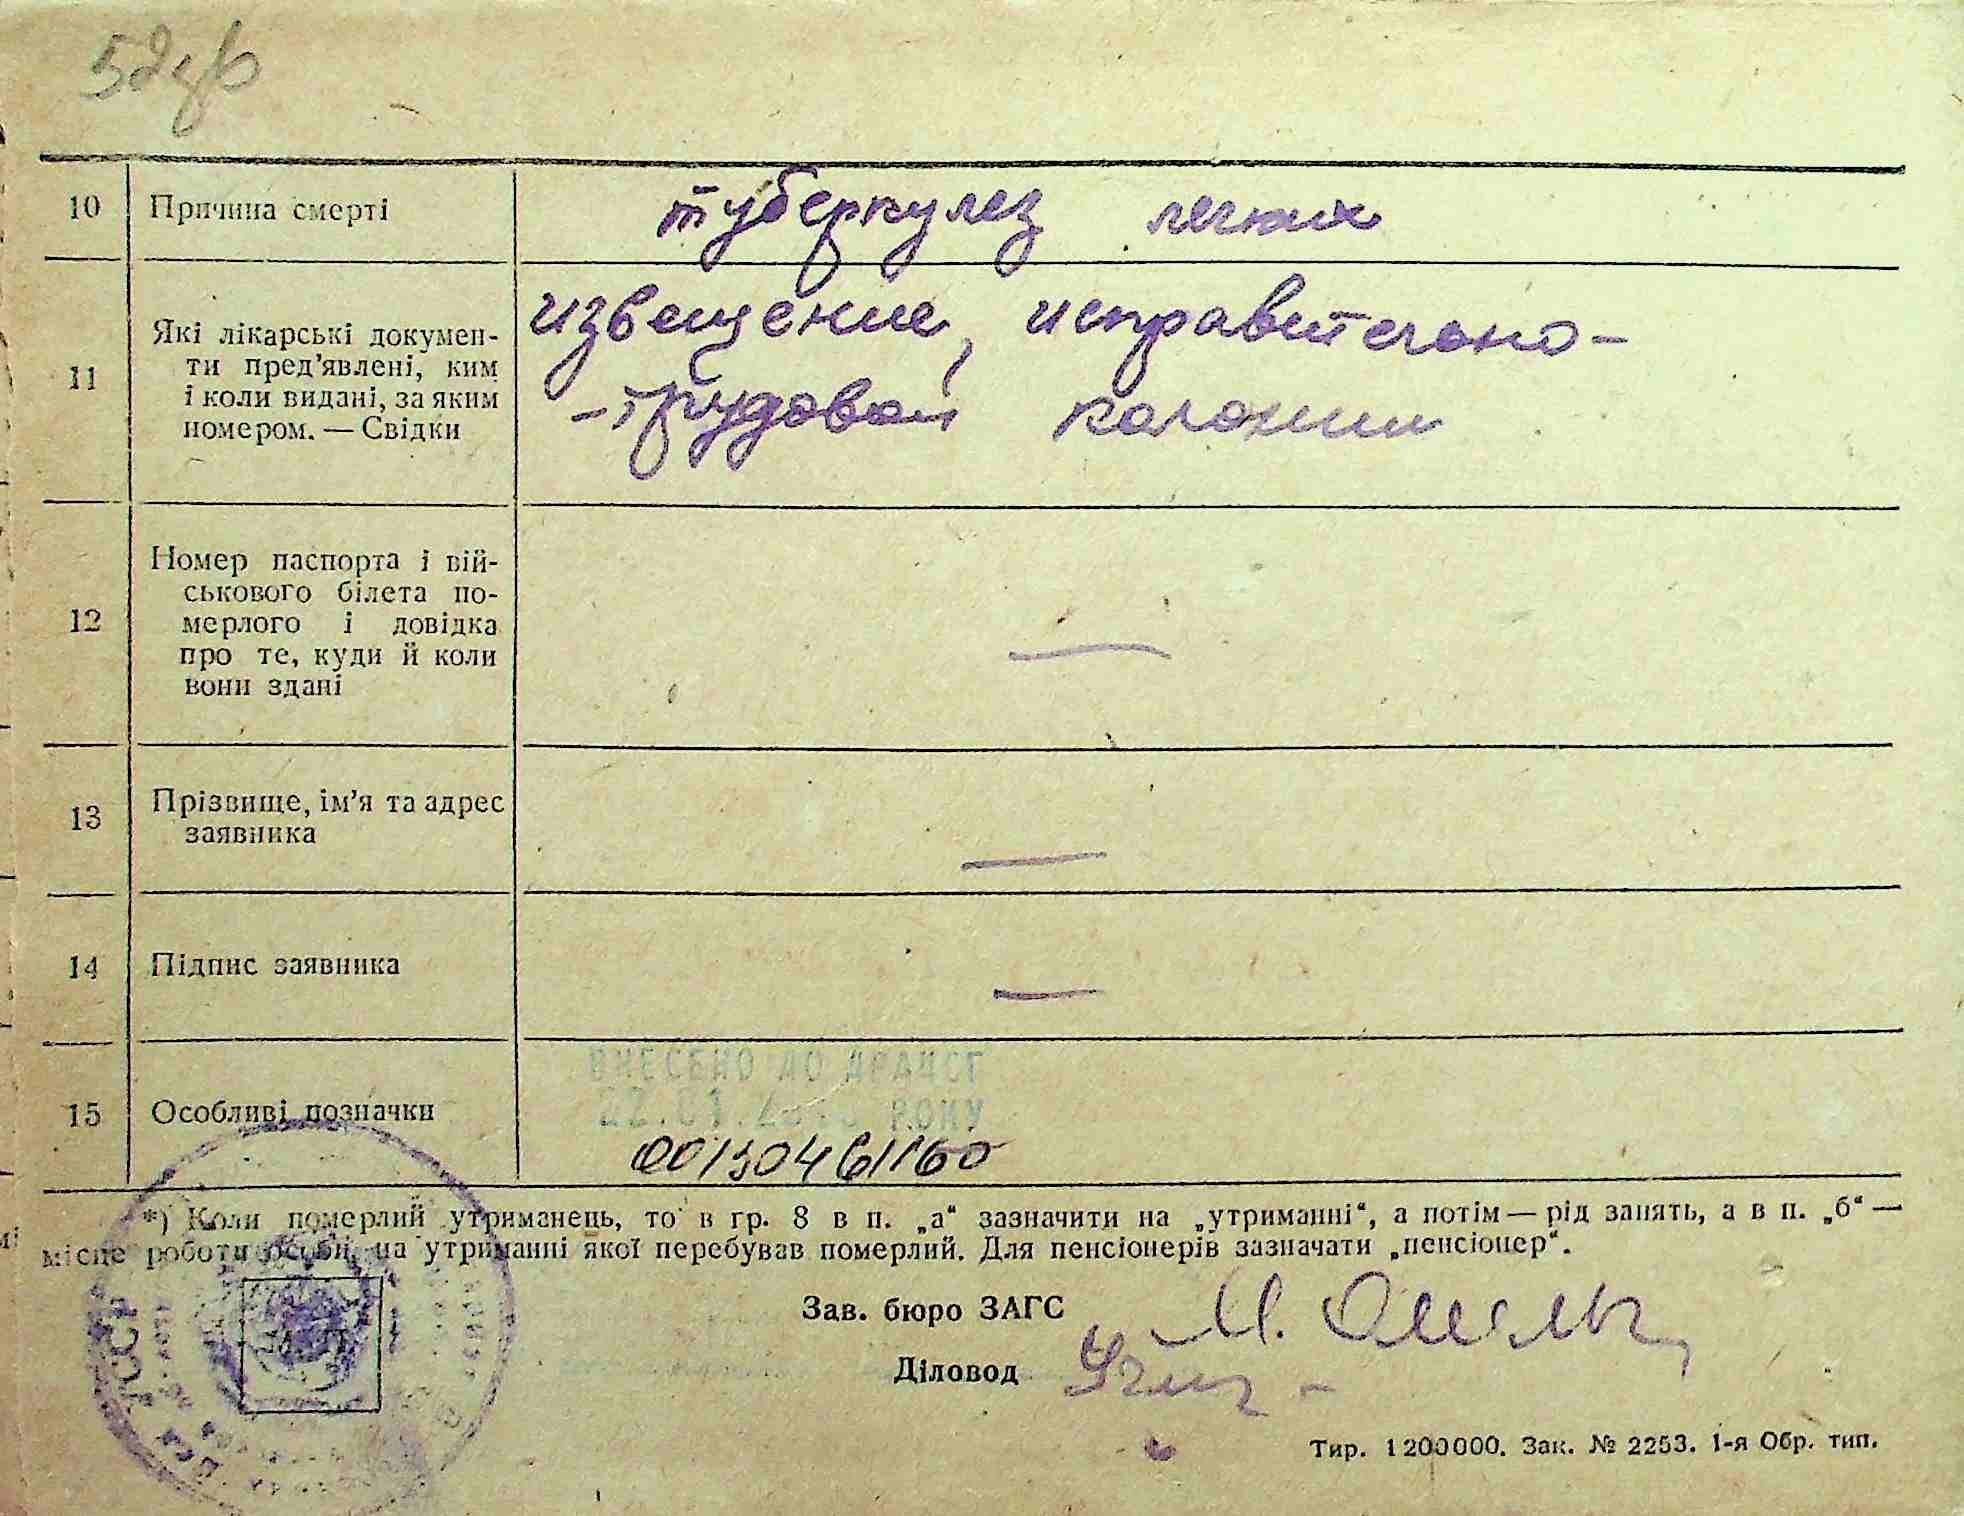 10 Причина смерті туберкулез легких
11 Які лікарські докумен-
ти пред’явлені, ким
і коли видані, за яким
номером. — Свідки
извещение, исправительно-
-трудовой колонии
12 Номер паспорта і вій-
ськового білета по-
мерлого і довідка
про те, куди й коли
вони здані
—
13 Прізвище, ім’я та адрес
заявника
—
14 Підпис заявника —
ВНЕСЕНО ДО ДРАЦСГ
РОКУ
15 Особливі позначки
00130461160
*) Коли померлий утриманець, то в гр. 8 в п. „а“ зазначити на „утриманні“, а потім — рід занять, а в п. „б“ —
місце роботи особи, на утриманні якої перебував померлий. Для пенсіонерів зазначати „пенсіонер“.
Зав. бюро ЗАГС
Діловод
Тир. 1200000. Зак. № 2253. 1-я Обр. тип.